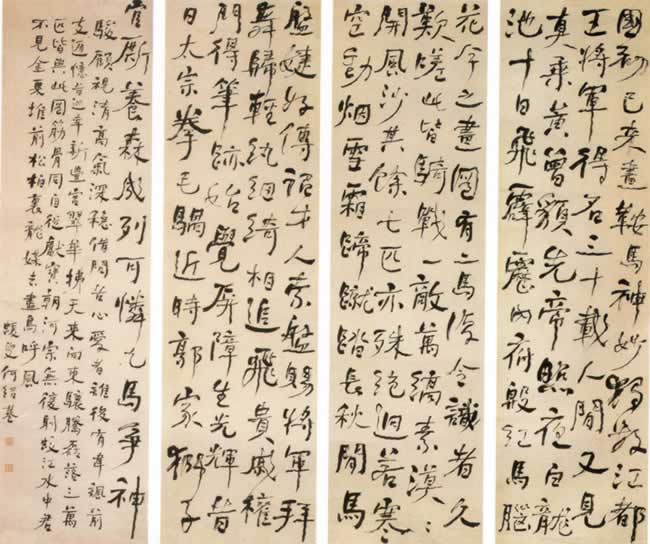 國初已來畫鞍馬神妙獨數江都
王將軍得名三十載人間又見
真乘黃曾貌先帝照夜白龍
池十日飛霹靂內府殷紅馬腦
花今之畫圖有二馬復令識者久
歎嗟此皆騎戰一敵萬縞素漠〻
開風沙其餘七匹亦殊絕迥若寒
空動烟雪霜蹄蹴踏長秋間馬
盤婕妤傳詔才人索盤賜將軍拜
舞歸輕紈細綺相追飛貴戚權
門得筆跡始覺屏障生光輝昔
日太宗拳毛騧近時郭家獅子
官廝養森成列可憐九馬爭神
駿顧視清高氣深穩借問苦心愛者誰後有韋諷前
支遁憶昔巡幸新豐宮翠華拂天來向東驤騰磊落三萬
匹皆與此圖筋骨同自從獻寶朝河宗無復射蛟江水中君
不見金粟堆前松柏裏龍媒去盡鳥呼風
蝯叟何紹基